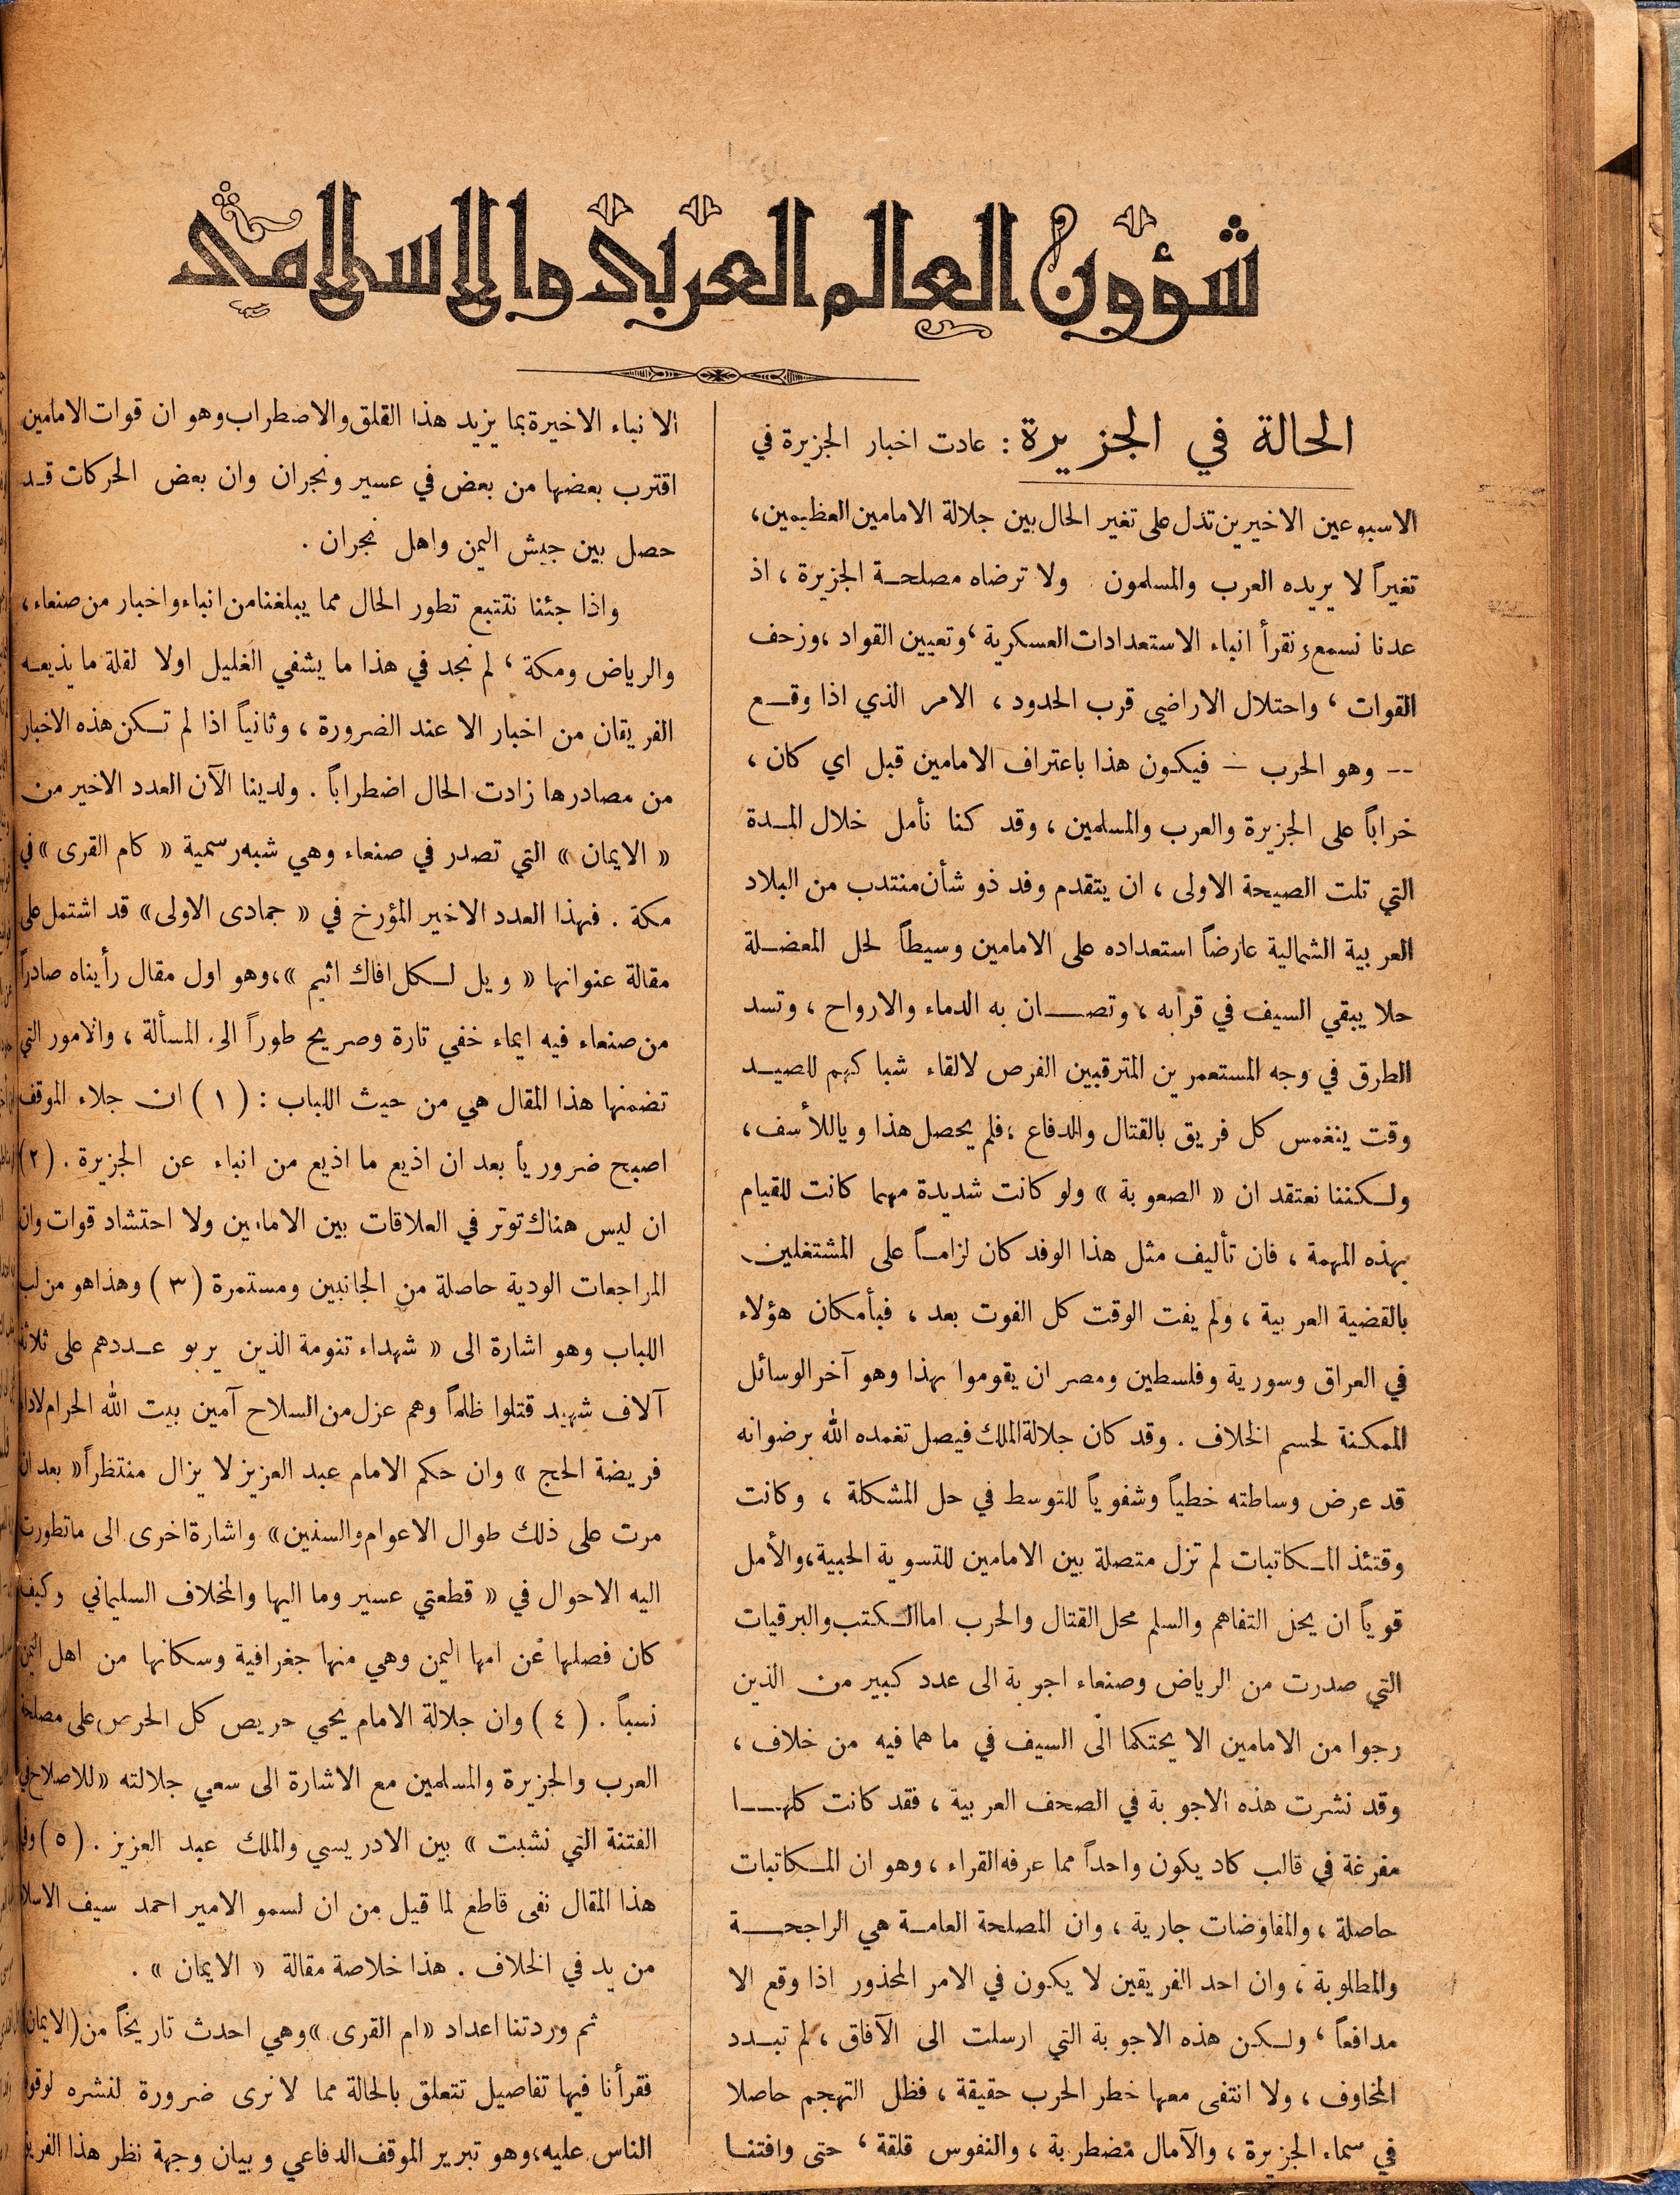 شؤون العالم العربي والاسلامي
الحالة في الجزيرة : عادت اخبار الجزيرة في
الاسبوعين الاخيرين تدل على تغير الحال بين جلالة الامامين العظيمين،
تغيراً لا يريده العرب والمسلمون ولا ترضاه مصلحة الجزيرة ، اذ
عدنا نسمع ونقرأ انباء الاستعدادات العسكرية ، وتعيين القواد ، وزحف
القوات ، واحتلال الاراضي قرب الحدود ، الامر الذي اذا وقع
-- وهو الحرب — فيكون هذا باعتراف الامامين قبل اي كان ،
خراباً على الجزيرة والعرب والمسلمين ، وقد كنا نأمل خلال المدة
التي تلت الصيحة الاولى ، ان يتقدم وفد ذو شأن منتدب من البلاد
العربية الشمالية عارضاً استعداده على الامامين وسيطاً لحل المعضلة
حلا يبقي السيف في قرابه ، وتصان به الدماء والارواح ، وتسد
الطرق في وجه المستعمرين المترقبين الفرص لالقاء شباكهم للصيد
وقت ينغمس كل فريق بالقتال والدفاع ، فلم يحصل هذا وياللأسف ،
ولكننا نعتقد ان « الصعوبة » ولو كانت شديدة مهما كانت للقيام
بهذه المهمة ، فان تأليف مثل هذا الوفد كان لزاماً على المشتغلين
بالقضية العربية ، ولم يفت الوقت كل الفوت بعد ، فبأمكان هؤلاء
في العراق وسورية وفلسطين ومصر ان يقوموا بهذا وهو آخر الوسائل
الممكنة لحسم الخلاف . وقد كان جلالة الملك فيصل تغمده الله برضوانه
قد عرض وساطته خطياً وشفوياً للتوسط في حل المشكلة ، وكانت
وقتئذ المكاتبات لم تزل متصلة بين الامامين للتسوية الحبية، والأمل
قوياً ان يحل التفاهم والسلم محل القتال والحرب اما الكتب والبرقيات
التي صدرت من الرياض وصنعاء اجوبة الى عدد كبير من الذين
رجوا من الامامين الا يحتكما الى السيف في ما هما فيه من خلاف ،
وقد نشرت هذه الاجوبة في الصحف العربية ، فقد كانت كلها
مفرغة في قالب كاد يكون واحداً مما عرفه القراء ، وهو ان المكاتبات
حاصلة ، والمفاوضات جارية ، وان المصلحة العامة هي الراجحة
والمطلوبة ، وان احد الفريقين لا يكون في الامر المحذور اذا وقع الا
مدافعاً ، ولكن هذه الاجوبة التي ارسلت الى الآفاق ، لم تبدد
المخاوف ، ولا انتفى معها خطر الحرب حقيقة ، فظل التهجم حاصلا
في سماء الجزيرة ، والآمال مضطربة ، والنفوس قلقة ، حتى وافتنا
الانباء الاخيرة بما يزيد هذا القلق والاضطراب وهو ان قوات الامامين
اقترب بعضها من بعض في عسير ونجران وان بعض الحركات قد
حصل بين جيش اليمن واهل نجران .
واذا جئنا نتتبع تطور الحال مما يبلغنا من انباء واخبار من صنعاء ،
والرياض ومكة ، لم نجد في هذا ما يشفي الغليل اولا لقلة ما يذيعه
الفريقان من اخبار الا عند الضرورة ، وثانياً اذا لم تكن هذه الاخبار
من مصادرها زادت الحال اضطراباً . ولدينا الآن العدد الاخير من
« الايمان » التي تصدر في صنعاء وهي شبه رسمية « كام القرى » في
مكة . فهذا العدد الاخير المؤرخ في « جمادى الاولى » قد اشتمل على
مقالة عنوانها « ويل لكل افاك اثيم »، وهو اول مقال رأيناه صادراً
من صنعاء فيه ايماء خفي تارة وصريح طوراً الى المسألة ، والامور التي
تضمنها هذا المقال هي من حيث اللباب : ( ١ ) ان جلاء الموقف
اصبح ضرورياً بعد ان اذيع ما اذيع من انباء عن الجزيرة . (٢)
ان ليس هناك توتر في العلاقات بين الامامين ولا احتشاد قوات وان
المراجعات الودية حاصلة من الجانبين ومستمرة ( ٣ ) وهذا هو من لب
اللباب وهو اشارة الى « شهداء تنومة الذين يربو عددهم على ثلاثة
آلاف شهيد قتلوا ظلماً وهم عزل من السلاح آمين بيت الله الحرام لاداء
فريضة الحج » وان حكم الامام عبد العزيز لا يزال منتظراً « بعد ان
مرت على ذلك طوال الاعوام والسنين » واشارة اخرى الى ما تطورت
اليه الاحوال في « قطعتي عسير وما اليها والمخلاف السليماني وكيف
كان فصلها عن امها اليمن وهي منها جغرافية وسكانها من اهل اليمن
نسباً . ( ٤ ) وان جلالة الامام يحيى حريص كل الحرص على مصلحة
العرب والجزيرة والمسلمين مع الاشارة الى سعي جلالته « للاصلاح في
الفتنة التي نشبت » بين الادريسي والملك عبد العزيز . ( ٥ )
هذا المقال نفى قاطع لما قيل من ان لسمو الامير احمد سيف
من يد في الخلاف . هذا خلاصة مقالة « الايمان » .
ثم وردتنا اعداد «ام القرى» وهي احدث تاريخاً من (الايمان)
فقرأنا فيها تفاصيل تتعلق بالحالة مما لا نرى ضرورة لنشره
الناس عليه، وهو تبرير الموقف الدفاعي وبيان وجهة نظر هذا